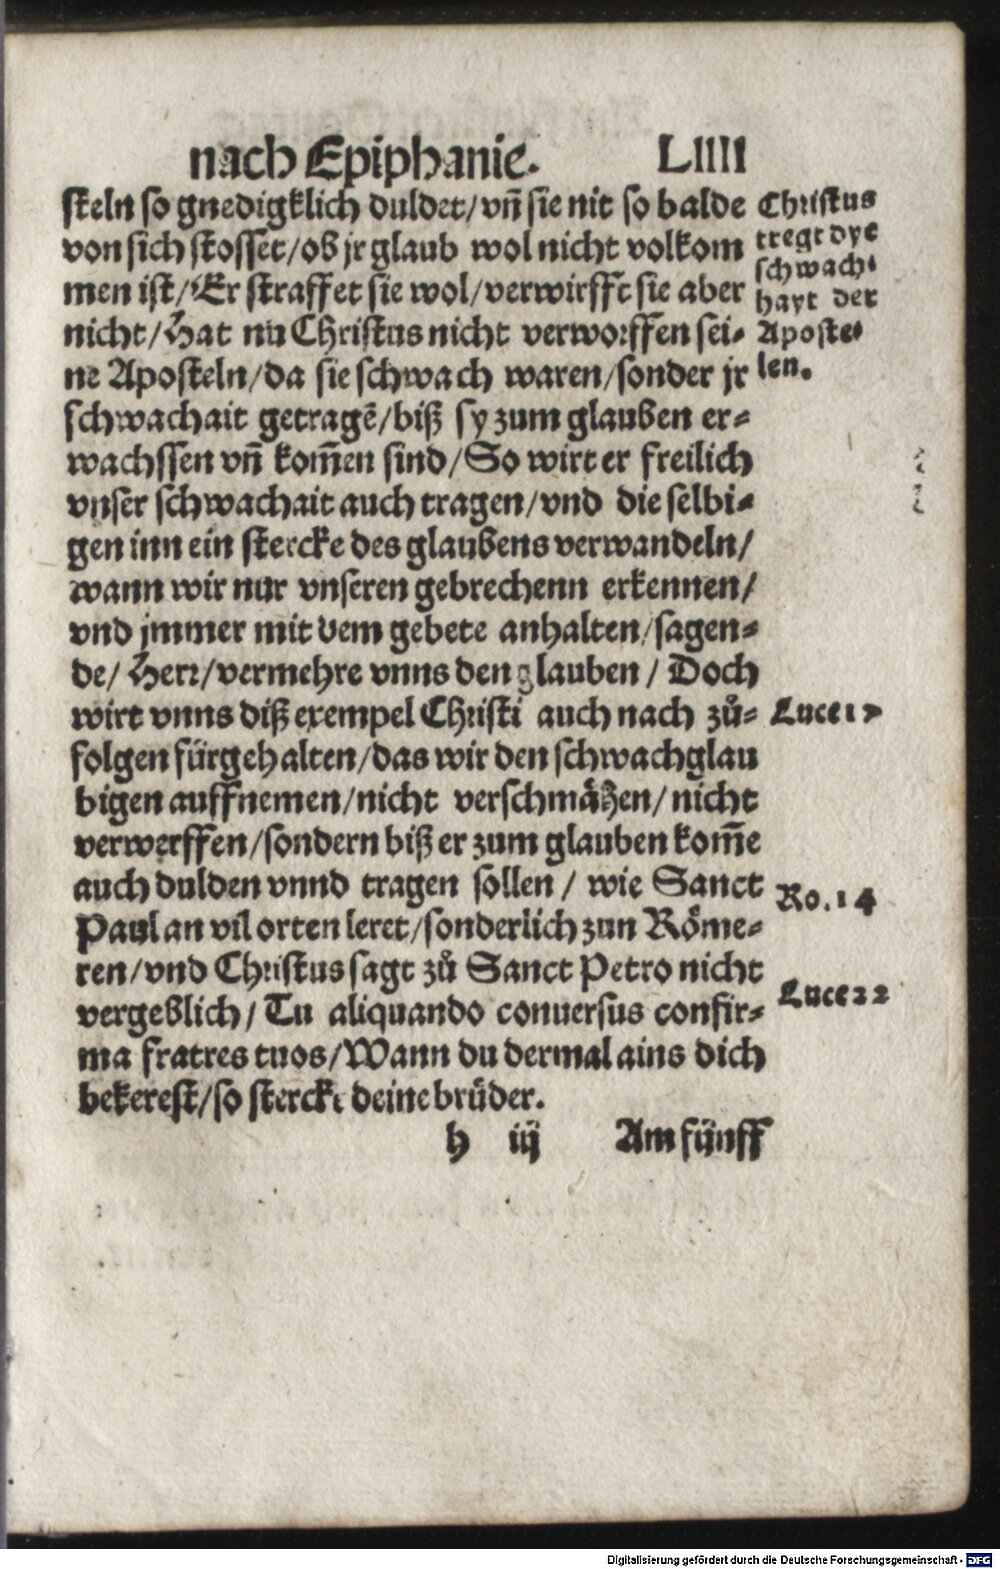 nach Epiphanie. LIIII
steln so gnedigklich duldet/vn̄ sie nit so balde
von sich stosset/ob jr glaub wol nicht volkom
men ist/Er straffet sie wol/verwirfft sie aber
nicht/Hat nū Christus nicht verworffen sei-
ne Aposteln/da sie schwach waren/sonder jr
schwachait getragē/biß sy zum glauben er-
wachssen vn̄ kom̄en sind/So wirt er freilich
vnser schwachait auch tragen/vnd die selbi-
gen inn ein stercke des glaubens verwandeln/
wann wir nur vnseren gebrechenn erkennen/
vnd jmmer mit dem gebete anhalten/sagen-
de/Herr/vermehre vnns den glauben/Doch
wirt vnns diß exempel Christi auch nach zů-
folgen fürgehalten/das wir den schwachglau
bigen auffnemen/nicht verschmähen/nicht
verwerffen/sondern biß er zum glauben kom̄e
auch dulden vnnd tragen sollen/wie Sanct
Paul an vil orten leret/sonderlich zun Röme-
ren/vnd Christus sagt zů Sanct Petro nicht
vergeblich/Tu aliquando conuersus confir-
ma fratres tuos/Wann du dermal ains dich
bekerest/so stercke deine brüder.
h iij Am fünff
Christus
tregt dye
schwach-
hayt der
Aposte-
len.
Luce 17
Ro. 14
Luce 22
Digitalisierung gefördert durch die Deutsche Forschungsgemeinschaft - DFG